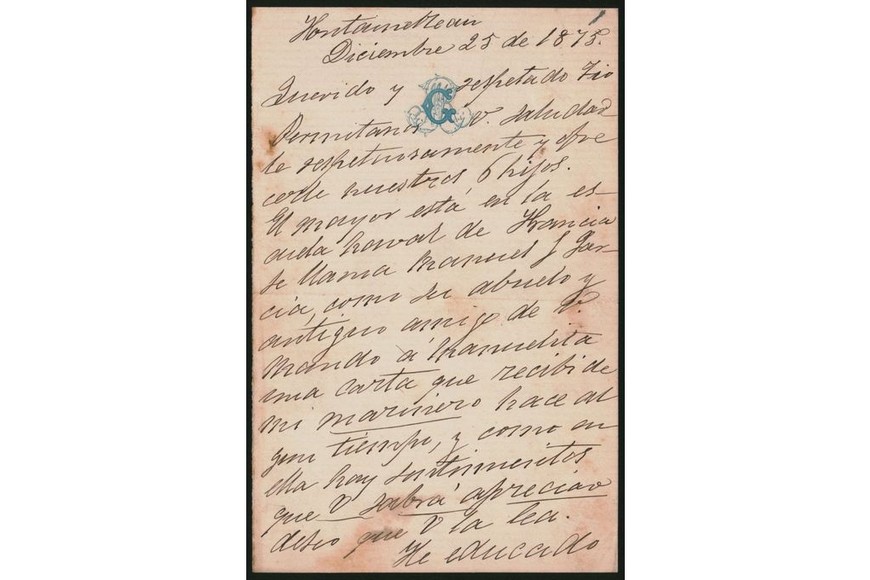 Fontainebleau
Diciembre 25 de 1875.
Querido y respetado Tio
G
Permitanos V. saludar
le respetuosamente y ofre
cerle nuestros 6 hijos.
El mayor está en la es-
cuela naval de Francia
se llama Manuel J Gar-
cia, como su abuelo y
antiguo amigo de V.
Mando á Manuelita
una carta que recibi de
mi marinero hace al
gun tiempo, y como en
ella hay sentimientos
que V sabrá apreciar
deseo que V la lea.
He educado